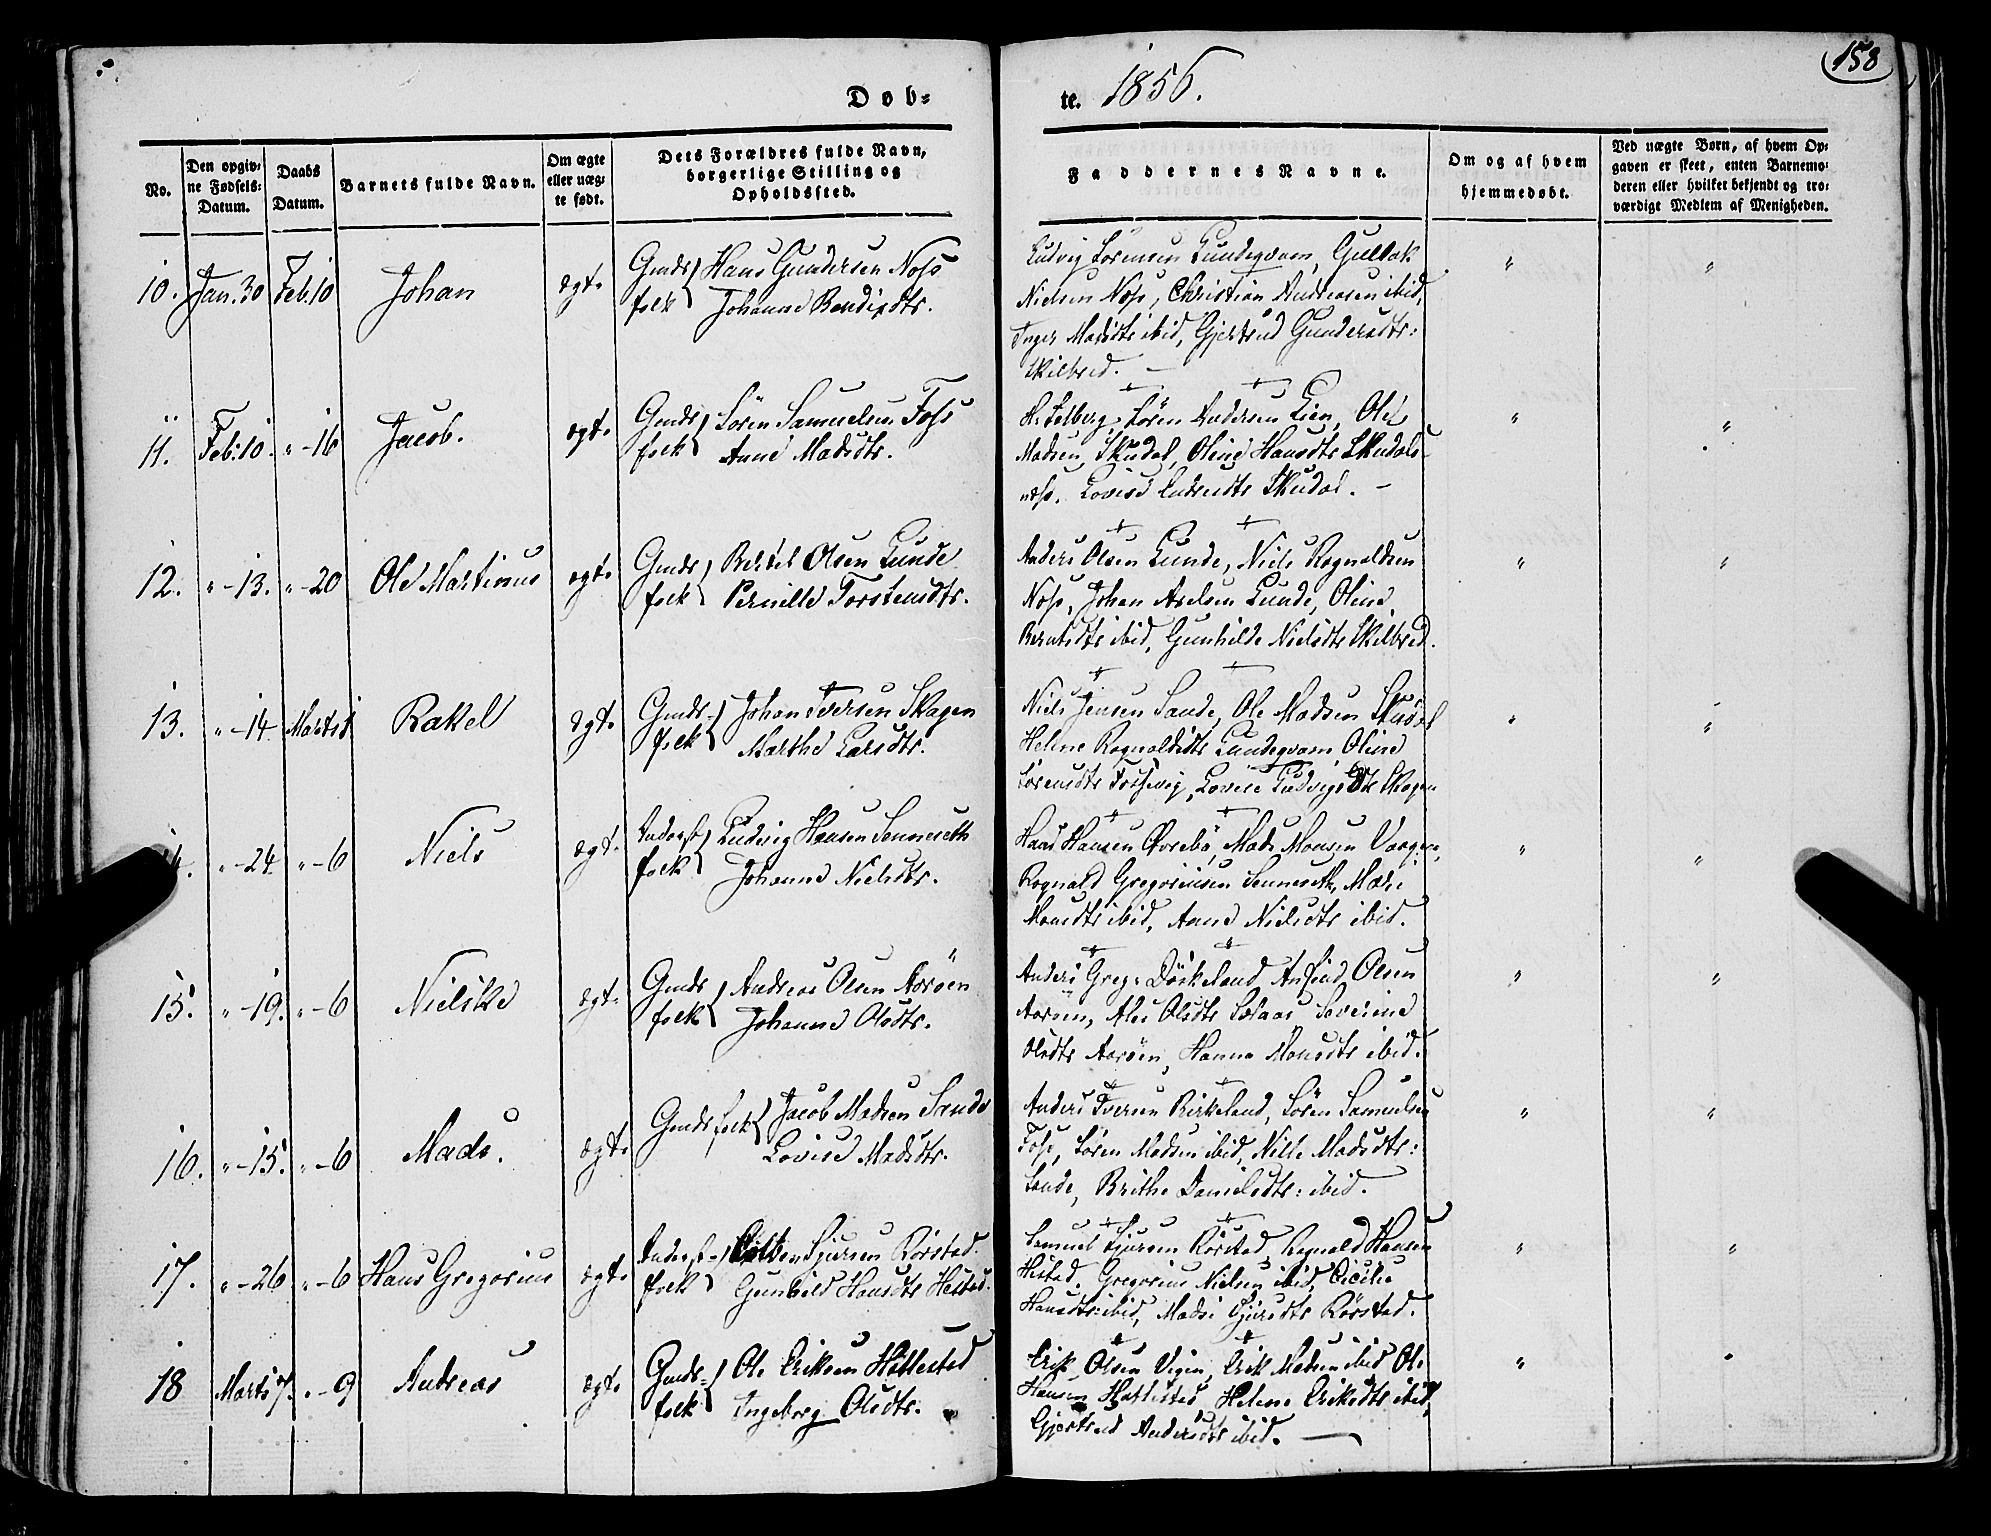 158
Døb-
te. 1856.
No.
Den opgiv-
ne Fødsels-
Datum.
Daabs
Datum.
Barnets fulde Navn.
Om ægte
eller uæg-
te født.
Dets Forældres fulde Navn,
borgerlige Stilling og
Opholdssted.
Faddernes Navne.
Om og af hvem
hjemmedøbt.
Ved uægte Børn, af hvem Op-
gaven er skeet, enten Barnemo-
deren eller hvilket bekjendt og tro-
værdigt Medlem af Menigheden.
10. Jan. 30 Feb. 10 Johan ægt. Gmds folk { Hans Gundersen Noss
Johanne Bendixdtr.
Ludvig Sørensen Lundeqvam, Gullak
Nielsen Noss, Christian Andreasen ibid,
Inger Madsdtr ibid, Gjertrud Gundersdtr:
Skilbred. —
" "
11. Feb: 10. " - 16 Jacob. ægt. Gmds folk { Sören Samuelsen Foss
Anne Madsdtr.
H. Selberg, Sören Andersen Lien, Ole
Madsen Skudal, Oline Hansdtr Skudals-
næss. Lovise Endresdtr Skudal. —
" "
12. " - 13. " - 20 Ole Martinus ægt. Gmds folk { Bertel Olsen Lunde
Pernille Torstensdtr.
Anders Olsen Lunde, Niels Rognaldsen
Noss, Johan Axelsen Lunde, Oline
Berntsdtr ibid, Gunhilde Nielsdtr Skilbred.
" "
13. " - 14. Marts 1 Rakel ægt. Gmds- folk { Johan Iversen Skagen
Marthe Larsdtr.
Niels Jensen Sande, Ole Madsen Skudal
Helene Rognaldsdtr Lundeqvam, Oline
Sörensdtr Fossevig, Lovise Ludvigsdtr Skagen
" "
" - 24. " - 6 Niels ægt. folk { Ludvig Hansen Senneseth
Johanne Nielsdtr.
Hans Hansen Övrebö, Mads Monsen
Rognald Gregoriusen Senneseth, Madsi
Monsdtr ibid, Anne Nielsdtr ibid.
" "
15. " - 19. " - 6 Nielske ægt. Gmds folk { Andreas Olsen Aaröen
Johanne Olsdtr.
Anders Greg: Döskeland, Anfind Olsen
Aaröen, Ales Olsdtr Solaas Severine
Olsdtr Aaröen, Hanna Monsdtr ibid.
" "
16. " - 15. " - 6 Mads. ægt. Gmds folk { Jacob Madsen Sande
Lovise Madsdtr.
Anders Iversen Birkeland, Sören Samuelsen
Foss, Sören Madsen ibid, Nille Madsdtr:
Sande, Brithe Danielsdtr: ibid.
" "
17. " - 26 " - 6 Hans Gregorius ægt. folk { Sjursen Rörstad.
Gunhild Hansdtr Hestad.
Samuel Sjursen Rörstad, Rognald Hansen
Hestad. Gregorius Nielsen ibid, Cicilie
Hansdtr: ibid, Madsi Sjursdtr Rörstad.
" "
18 Marts 7. " - 9 Andreas ægt. Gmds- folk { Ole Eriksen Hattestad
Ingeborg Olsdtr.
Erik Olsen Vigen, Erik Madsen ibid Ole
Hansen Hattestad, Helene Eriksdtr ibid,
Gjertrud Andersdtr ibid. —
" "